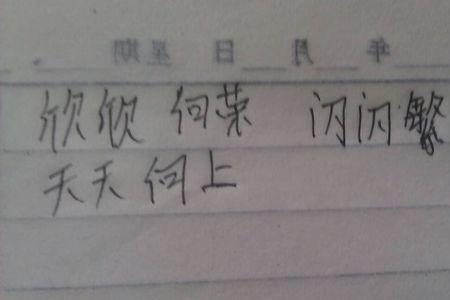 年 月 日 星期 .
欣欣 向荣 闪闪 繁
天天 向上